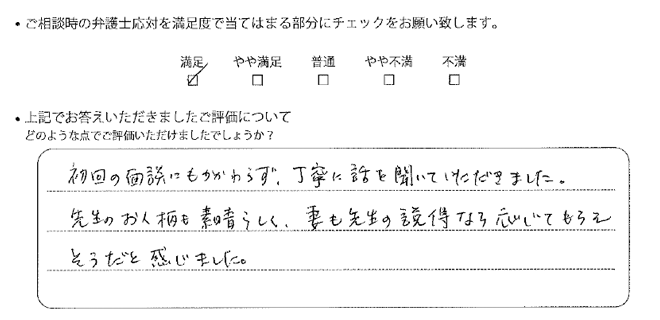 ・ご相談時の弁護士応対を満足度で当てはまる部分にチェックをお願い致します。
満足 やや満足 普通 やや不満 不満
・上記でお答えいただきましたご評価について
どのような点でご評価いただけましたでしょうか？
初回の面談にもかかわらず、丁寧に話を聞いていただきました。
先生のお人柄も素晴らしく、妻も先生の説得なら応じてもらえ
そうだと感じました。